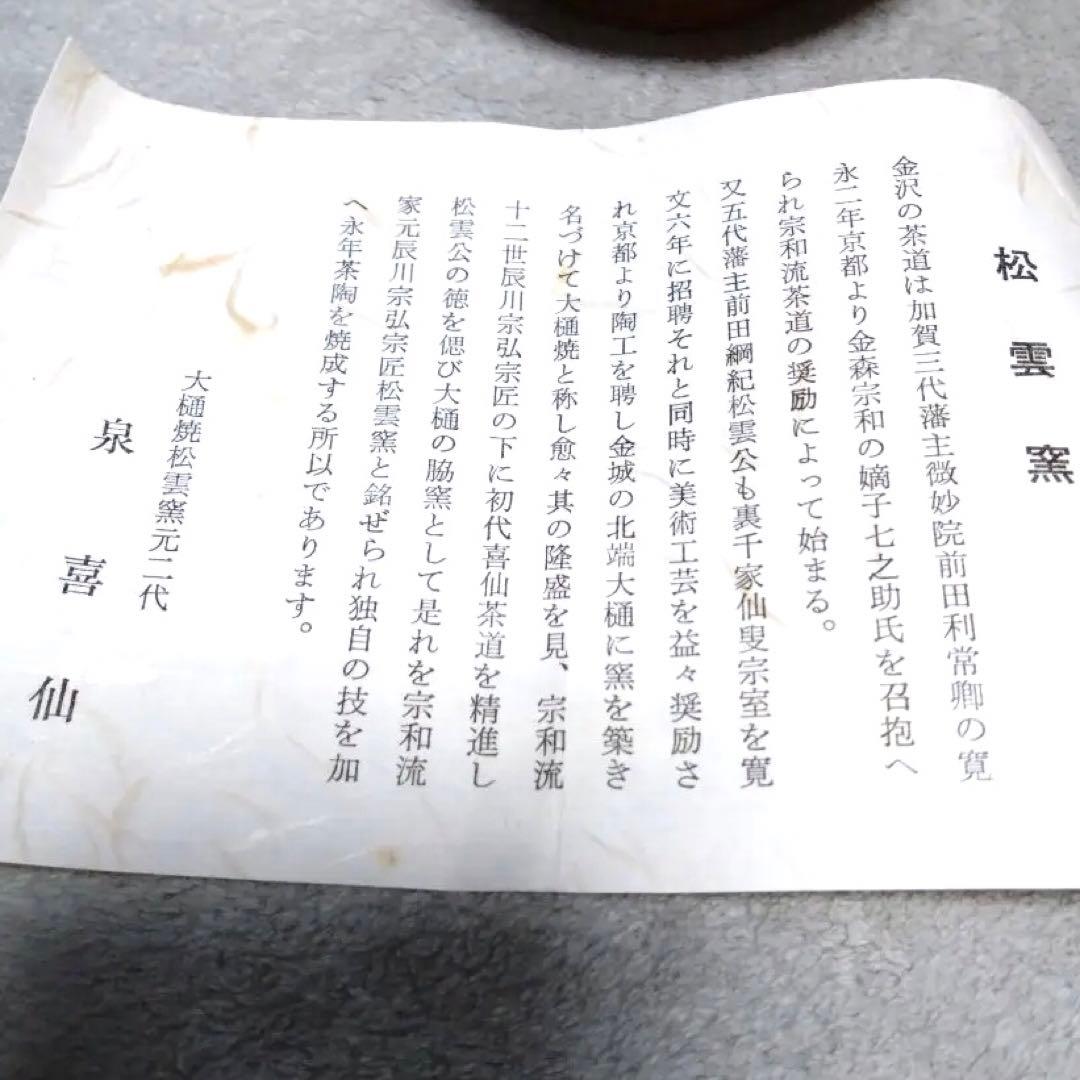 松雲窯
金沢の茶道は加賀三代藩主微妙院前田利常卿の寛
永二年京都より金森宗和の嫡子七之助氏を召抱へ
られ宗和流茶道の奨励によって始まる。
又五代藩主前田綱紀松雲公も裏千家仙叟宗室を寛
文六年に招聘それと同時に美術工芸を益々奨励さ
れ京都より陶工を聘し金城の北端大樋に窯を築き
名づけて大樋焼と称し愈々其の隆盛を見、宗和流
十二世辰川宗弘宗匠の下に初代喜仙茶道を精進し
松雲公の徳を偲び大樋の脇窯として是れを宗和流
家元辰川宗弘宗匠松雲窯と銘ぜられ独自の技を加
へ永年茶陶を焼成する所以であります。
大樋焼松雲窯元二代
泉喜仙